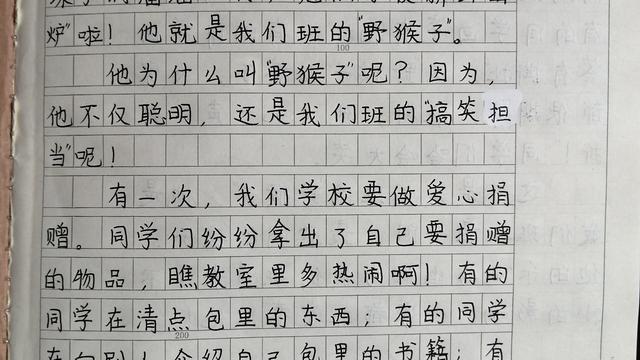 炉"啦！他就是我们班的"野猴子"。
100
他为什么叫"野猴子"呢？因为，
他不仅聪明，还是我们班的"搞笑担
当"呢！
有一次，我们学校要做爱心捐
赠。同学们纷纷拿出了自己要捐赠
的物品，瞧教室里多热闹啊！有的
同学在清点包里的东西；有的同学
200
在向别人介绍自己包里的书籍；有